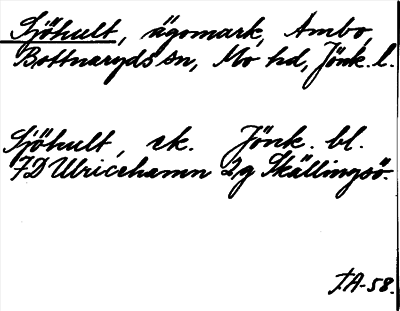 Sjöhult, ägomark, Ambo,
Bottnaryds sn, Mo hd, Jönk. l.
Sjöhult, ek. Jönk. bl.
7D Ulricehamn 2g Skällingsö.
T.A-58.